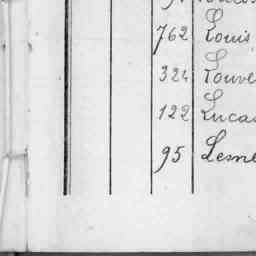 762 Louis
324 Louve
122 Lucas
95 Lesne